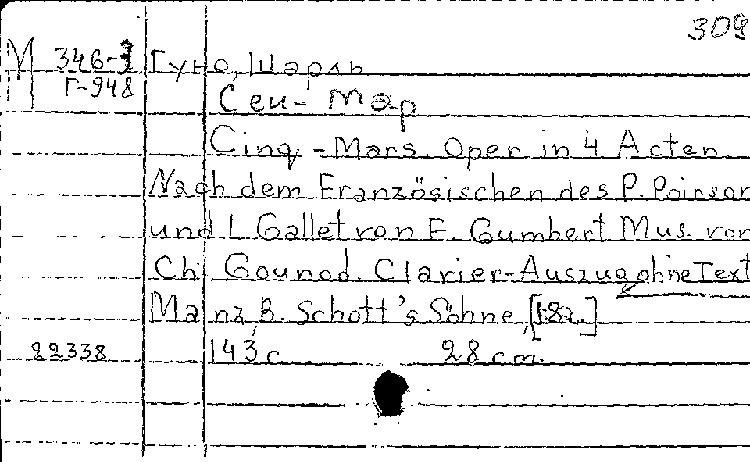 309
М 346-3 Гуно, Шарль
Г-948 Сен-Мар
Cinq-Mars. Oper in 4 Acten
Nach dem Französischen des P. Poirson
und L. Gallet von F. Gumbert Mus. von
Ch. Gounod. Clavier-Auszug ohne Text
Mainz, B. Schott's Söhne,
22338 143 с 28 cm.